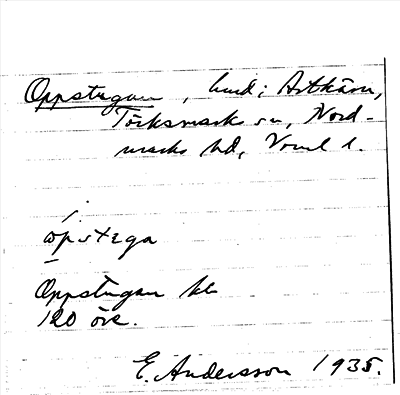 Oppstugan, hmd i Artkärn,
Töcksmarks sn, Nord-
marks hd, Vrml l.
òpstæga
Oppstugan kl
120 öre.
E. Andersson 1935.